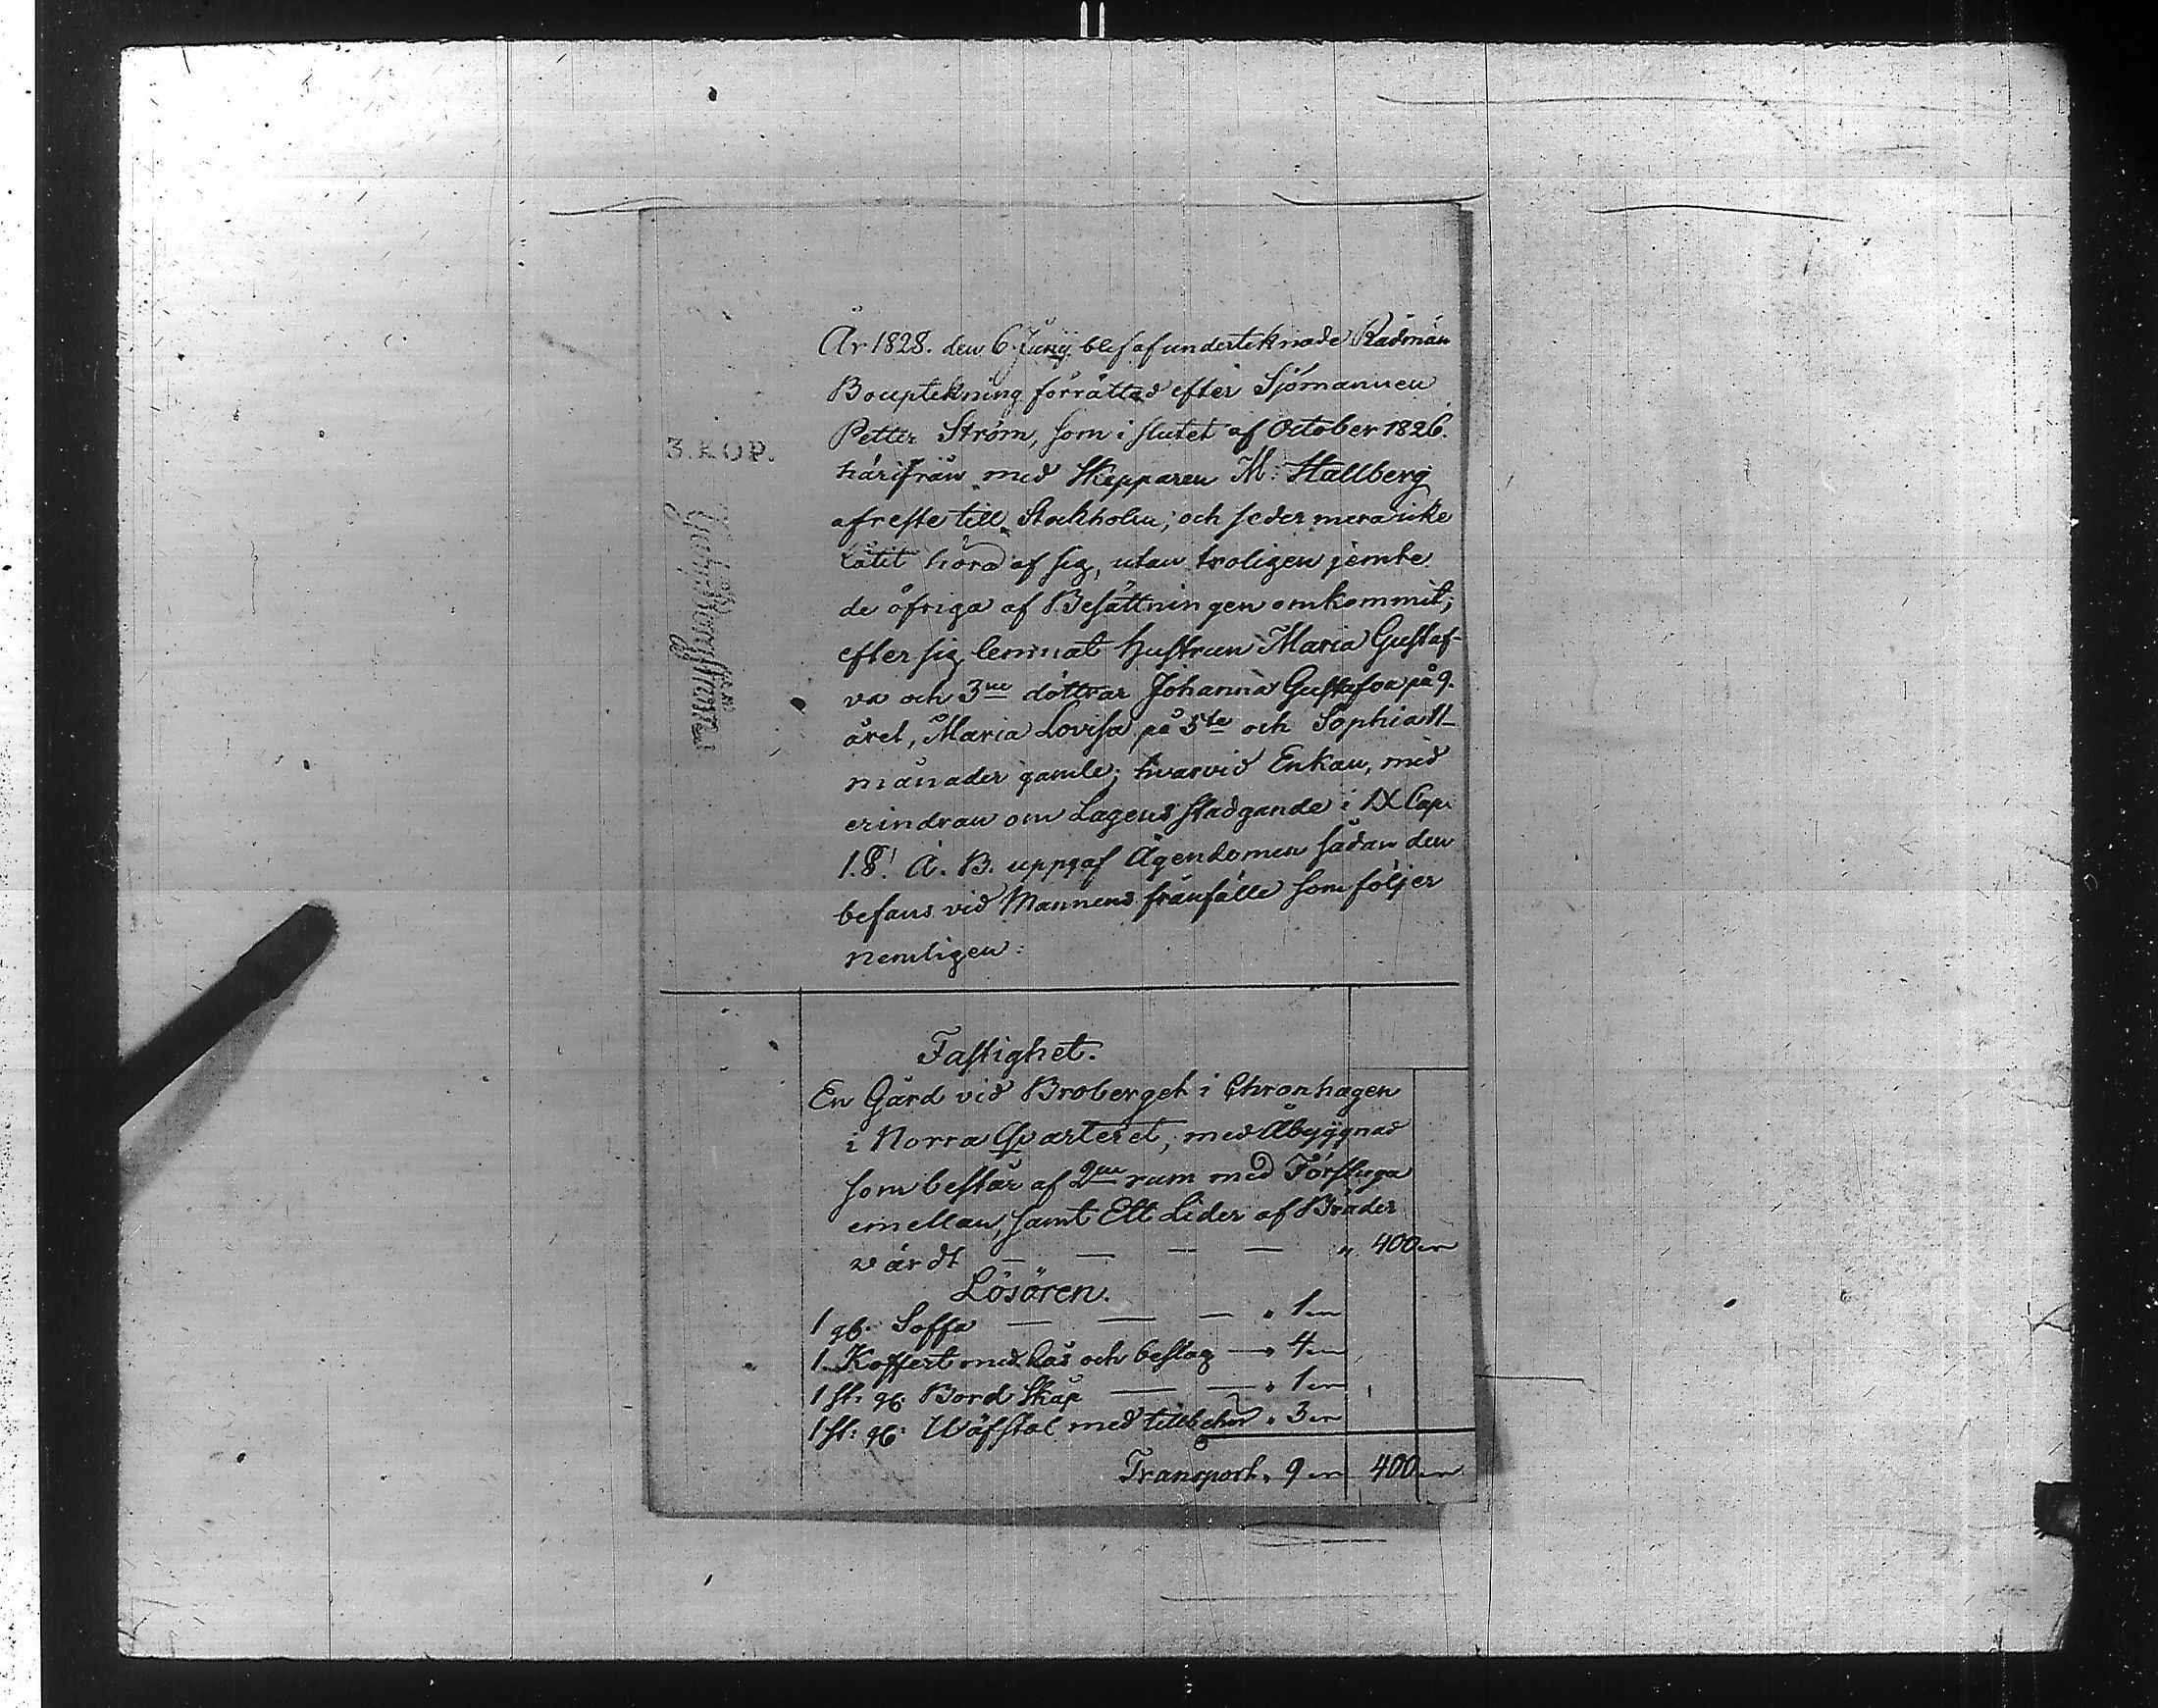 3. KOP.
År 1828. den 6 Junÿ blef af underteknade Rådmän
Bouptekning förrättad efter Sjömannen
Petter Ström, som i slutet af October 1826.
härifrån med Skepparen M: Hallberg
afreste till Stockholm; och seder mera icke
låtit höra af sig, utan troligen jemte
de öfriga af Besättningen omkommit;
efter sig lemnat hustrun Maria Gustaf-
va och 3ne döttrar Johanna Gustafva på 9.
året, Maria Lovisa på 5te och Sophia 11-
månader gamle; hvarvid Enkan, med
erindran om Lagens stadgande i IX Cap.
1.§! Ä. B. uppgaf Ägendomen sådan den
befans vid Mannens frånfälle som följer
nemligen:
Fastighet.
En Gård vid Broberget i Chronhagen
i Norra Qvarteret, med Åbyggnad
som består af 2ne rum med Förstuga
emellan, samt Ett Lider af Bräder
värdt — — — — " 400
Lösören.
1 gl. Soffa — — — " 1
1. Koffert med Lås och beslag — " 4
1 st: gl. Bord Skåp — — " 1
1 st: gl: Wäfstol med tillbehör " 3
Transport " 9 400